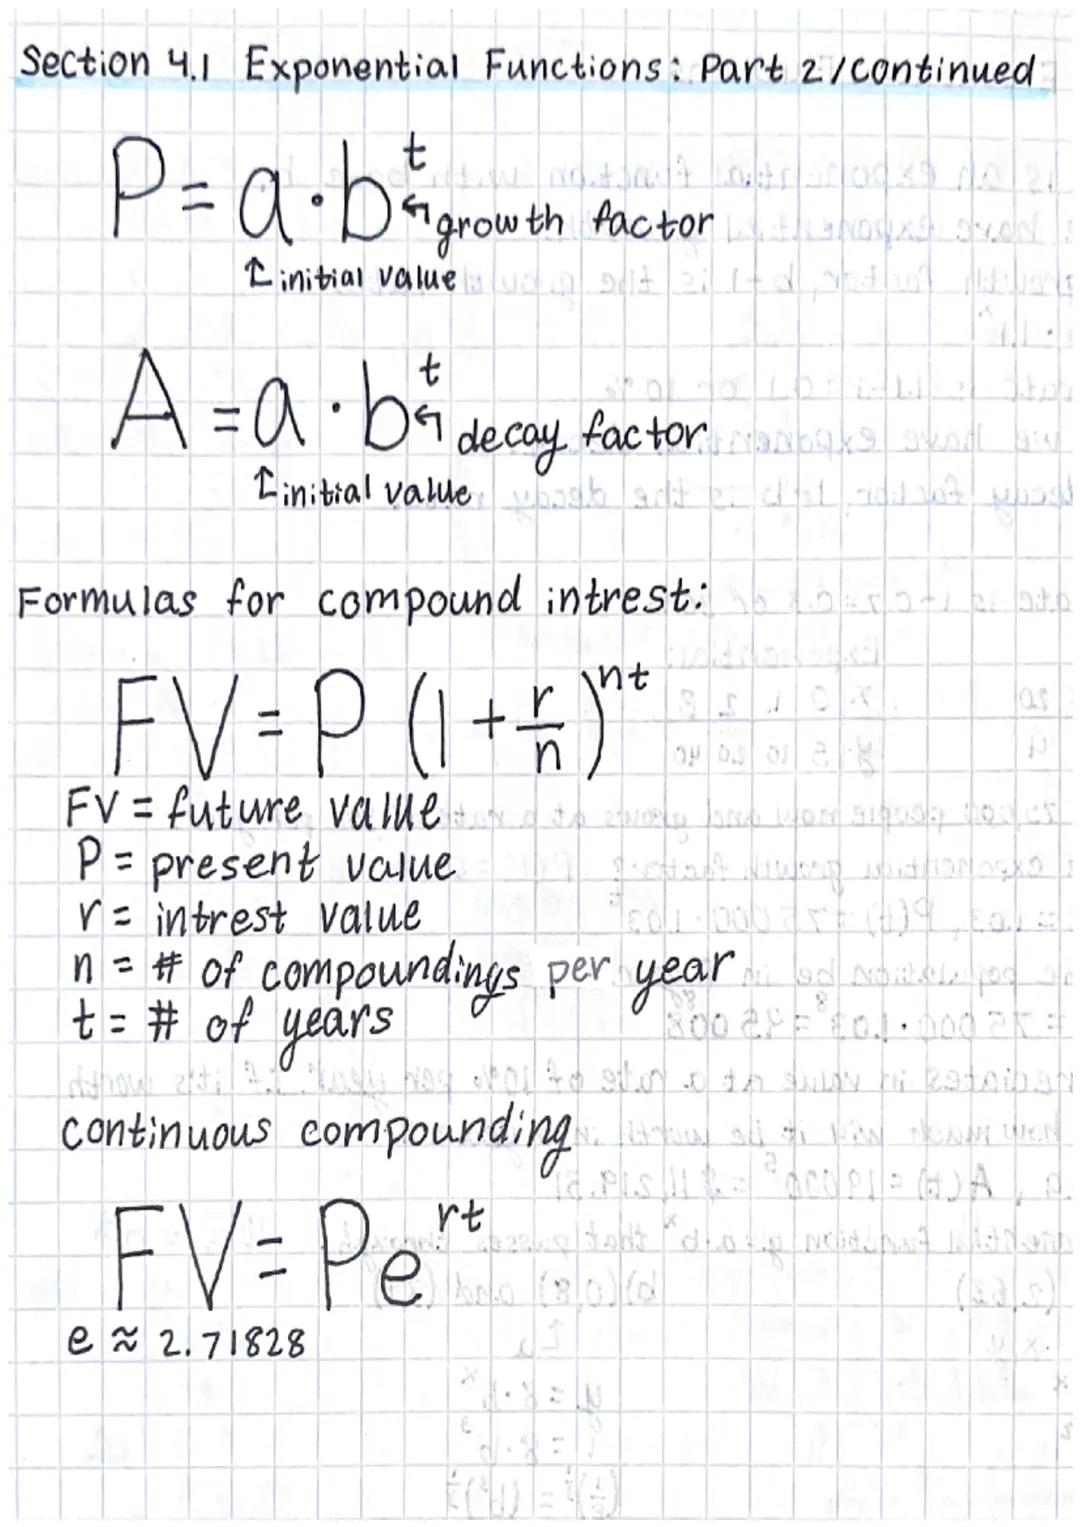 Section 4.1 Exponential Functions: Part 2/continued
P = a·b^t
↰ growth factor
↑ initial value
A = a·b^t
↰ decay factor
↑ initial value
Formulas for compound intrest:
FV = P (1 + r/n)^nt
FV = future value
P = present value
r = intrest value
n = # of compoundings per year
t = # of years
continuous compounding
FV = Pe^rt
e ≈ 2.71828